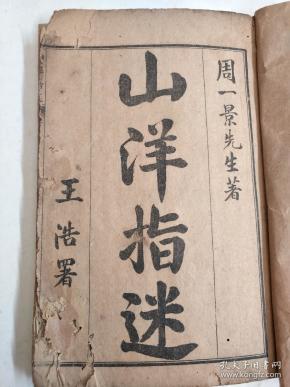 周一景先生著
山洋指迷
王浩署
孔夫子旧书网